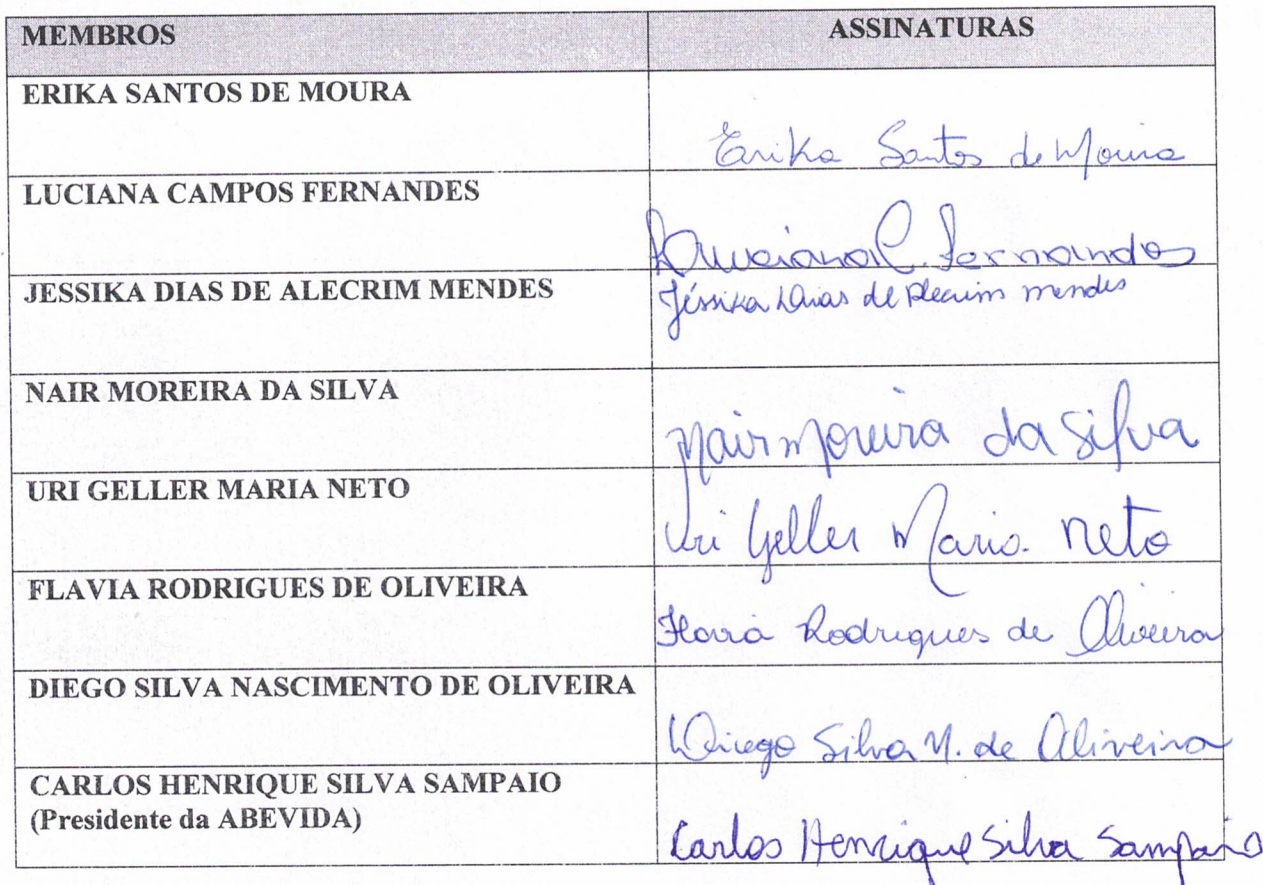 MEMBROS ASSINATURAS
ERIKA SANTOS DE MOURA
Erika Santos de Moura
LUCIANA CAMPOS FERNANDES
Luciana C. Fernandes
JESSIKA DIAS DE ALECRIM MENDES
Jéssika Dias de Alecrim mendes
NAIR MOREIRA DA SILVA
Nair moreira da silva
URI GELLER MARIA NETO
Uri Geller Maria Neto
FLAVIA RODRIGUES DE OLIVEIRA
Flavia Rodrigues de Oliveira
DIEGO SILVA NASCIMENTO DE OLIVEIRA
Diego Silva N. de Oliveira
CARLOS HENRIQUE SILVA SAMPAIO
(Presidente da ABEVIDA)
Carlos Henrique Silva Sampaio